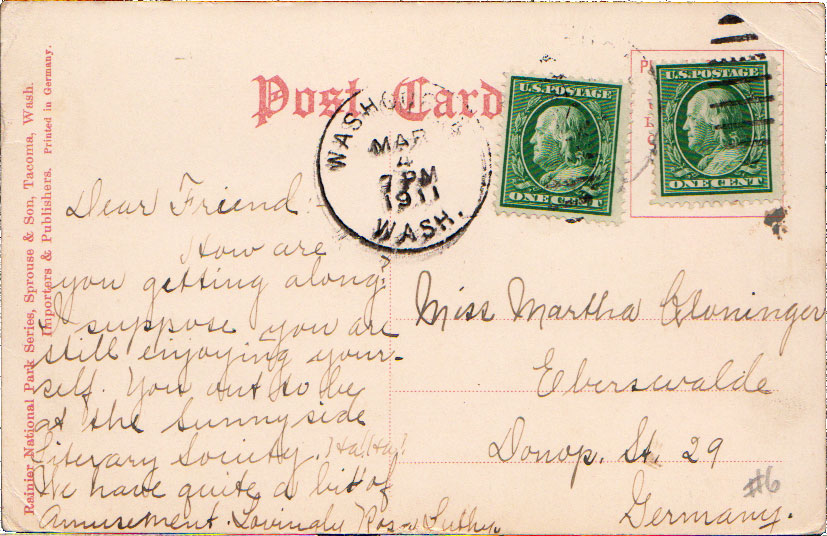 Post Card
WASHOUGAL
MAR
4
7 PM
1911
WASH.
U.S. POSTAGE
ONE CENT
U.S. POSTAGE
ONE CENT
Rainier National Park Series, Sprouse & Son, Tacoma, Wash.
Importers & Publishers. Printed in Germany.
Dear Friend:-
How are
you getting along?
I suppose you are
still enjoying your-
self. You out to be
at the Sunnyside
Literary Society. Ha! Ha!
We have quite a bit of
Amusement. Lovingly Rosa
Miss Martha Cloninger
Eberswalde
Donop. St. 29
Germany.
#6